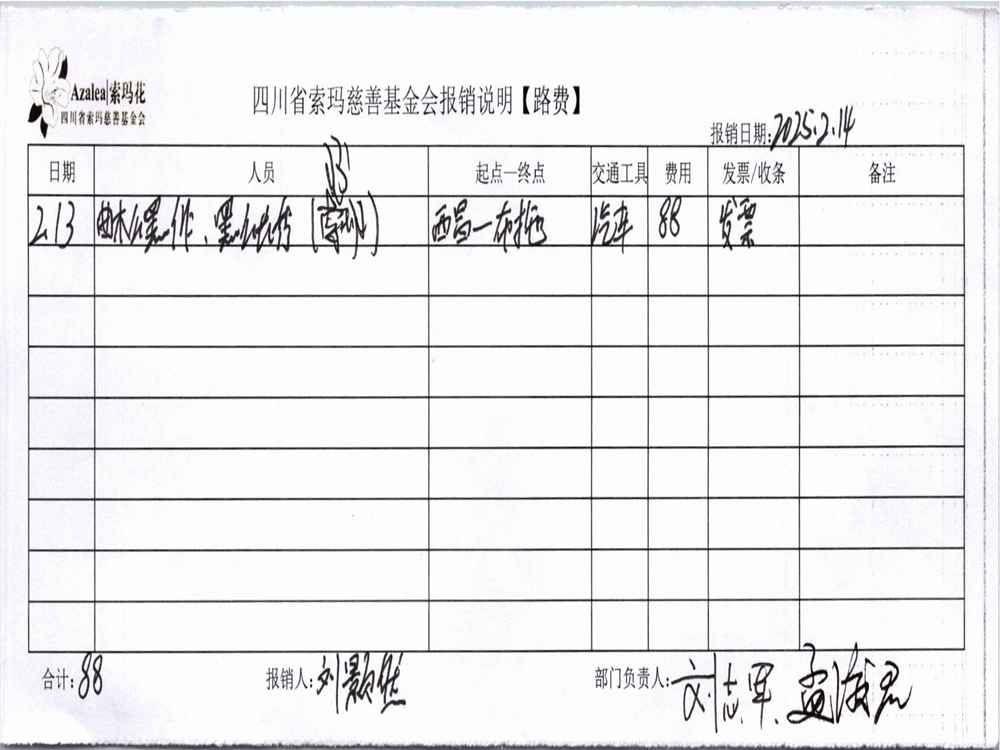 Azalea|索玛花
四川省索玛慈善基金会
四川省索玛慈善基金会报销说明【路费】
报销日期:2025.2.14
日期 人员 起点—终点 交通工具 费用 发票/收条 备注
2.13 曲木 西昌—布拖 汽车 88 发票
合计:88 报销人:刘颢然 部门负责人:刘志军、孟